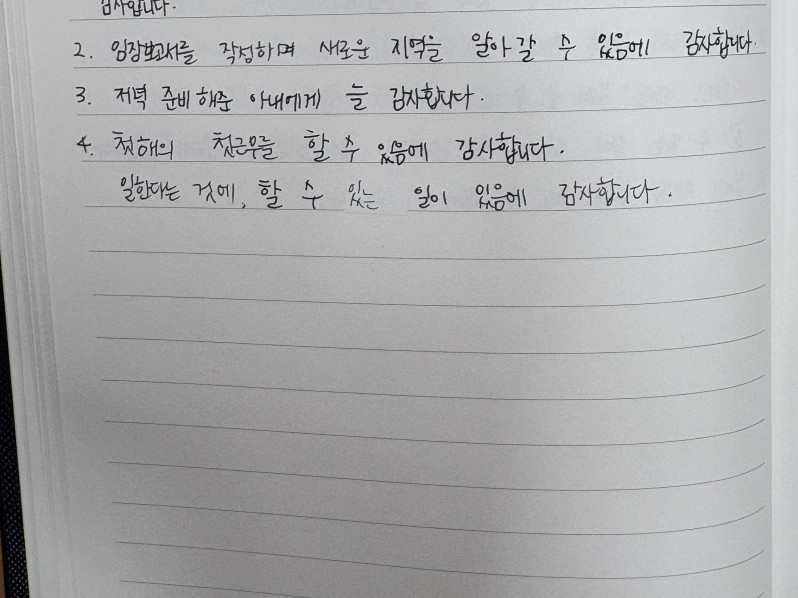 감사합니다.
2. 임장보고서를 작성하며 새로운 지역을 알아갈 수 있음에 감사합니다.
3. 저녁 준비해준 아내에게 늘 감사합니다.
4. 첫해의 첫근무를 할 수 있음에 감사합니다.
일한다는 것에, 할 수 있는 일이 있음에 감사합니다.